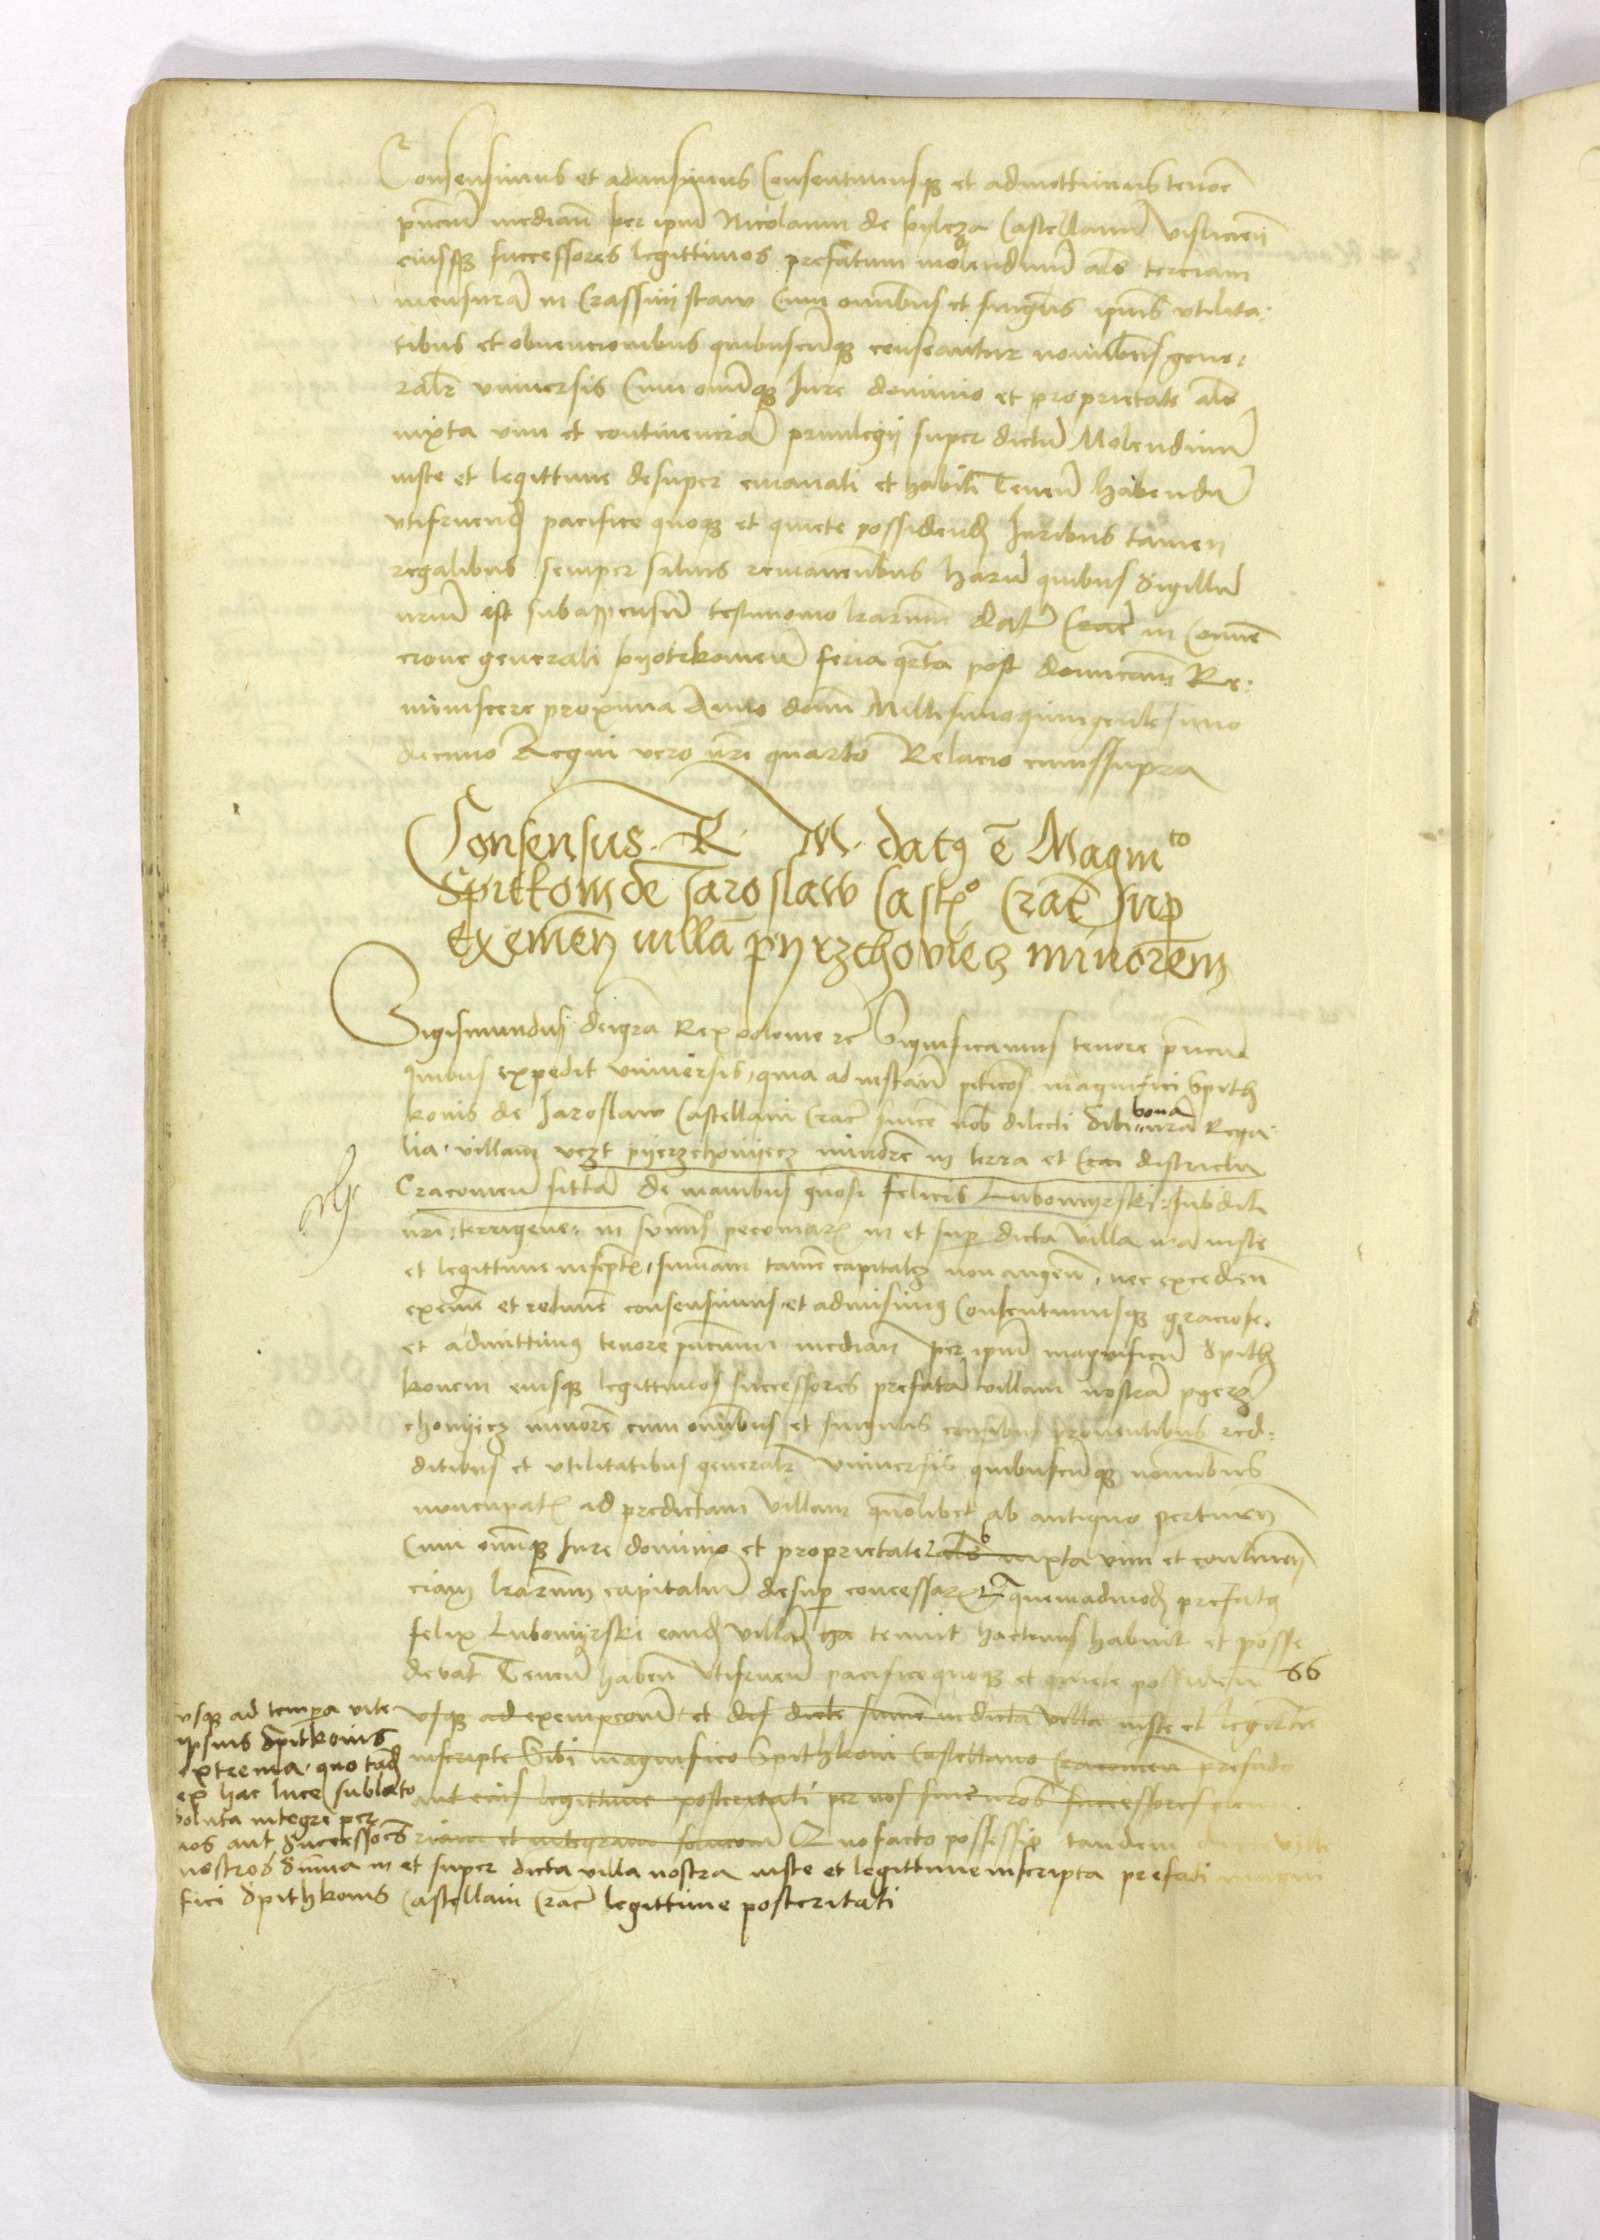 Consensimus et admisimus Consentimusq et admittimus tenore
pntium median per ipm Nicolaum de pylcza Castellanu vislicien
eiusq successores legittimos prefatum molendinu als terciam
mensura in Crassny staw Cum omnibus et singulis ipius utilita:
tibus et obuencionibus quibuscuq censeantur nominibus gene:
ralr vniuersis Cum omniq Iure dominio et proprietate als
iuxta vim et continencia priuilegij super dictu Molendinu
iuste et legittime desuper emanati et habiti Tenen habendu
vtifruend pacifice quoq et quiete possidend Iuribus tamen
regalibus semper saluis remanentibus Haru quibus Sigillu
nrum est subappensu testimonio lrarum Datu Crac in Conuen
cione generali pyotrkouien feria qrta post dominicam Re:
miniscere proxima Anno domi Millesimoquingentesimo
decimo Regni vero nri quarto Relacio cuiussupra
Consensus R M datq e Magnito
Spitkoni de Iaroslaw Castlo Crac sup
exemen villa pyrzchoviecz minorem
Sigismundus dei gra Rex polonie rc Significamus tenore pntium
quibus expedit vniuersis, quia ad instan peticoes magnifici Spith
konis de Iaroslaw Castellani Crac sincere nob dilecti Sibi bona nra Rega
lia villam vczt pyerzchouyecz minore in terra et Crac districtu
Cracouien sitta de manibus gnosi felicis Lubomyrski subditi
nri terrigene in summis pecuniar in et sup dicta villa nra iuste
et legittime inscpte, summam tame capitale non augen, nec exceden
exeme et redime consensimus et admisimus Consentimusq graciose
et admittimus tenore pntium median per ipm magnificu Spith
konem eiusq legittimos successores prefata villam nostra pyerz
chouyecz minore cum omnibus et singulis censibus prouentibus red:
ditibus et vtilitatibus generalr vniuersis quibuscuq nominibus
nuncupatis ad predictam villam quolibet ab antiquo pertinen
Cum omniq Iure dominio et proprietate als iuxta vim et continen
ciam lrarum capitaliu desup concessar quemadmod prefatq
felix Lubomyrski eand villa tenuit hactenus habuit et posse
debat Tenen haben vtifruen pacifice quoq et quiete possiden 66
vsq ad exempcom et dicte summe in dicta villa iuste et legittime
inscripte Sibi magnifico Spithkoni Castellano Cracouien prefato
aut eius legittime posteritati per nos siue nros successores plena
riam et integram solucom Quo facto possessio tandem
vsq ad tempora vite
ipsius Spitkonis
extrema quo tand
ex hac luce sublato
soluta integre per
nos aut Successores
nostros Suma in et super dicta villa nostra iuste et legittime inscripta prefati magni
fici Spithkonis Castellani Crac legittime posteritati